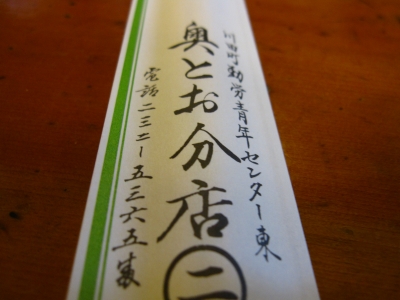 川田町勤労青年センター東
奥とお分店㊁
電話二三二ー五三六五番